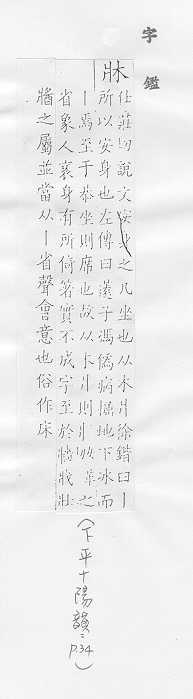 字鑑
牀 仕莊切說文安身之几坐也从木爿徐鍇曰丨
所以安身也左傳曰薳子馮僞病掘地下冰而
丨焉至于恭坐則席也故从木爿則爿牀之
省象人衺身有所倚著實不成字至於牆戕壯
牆之屬並當从丨省聲會意也俗作床
(下平十陽韻 P.34)